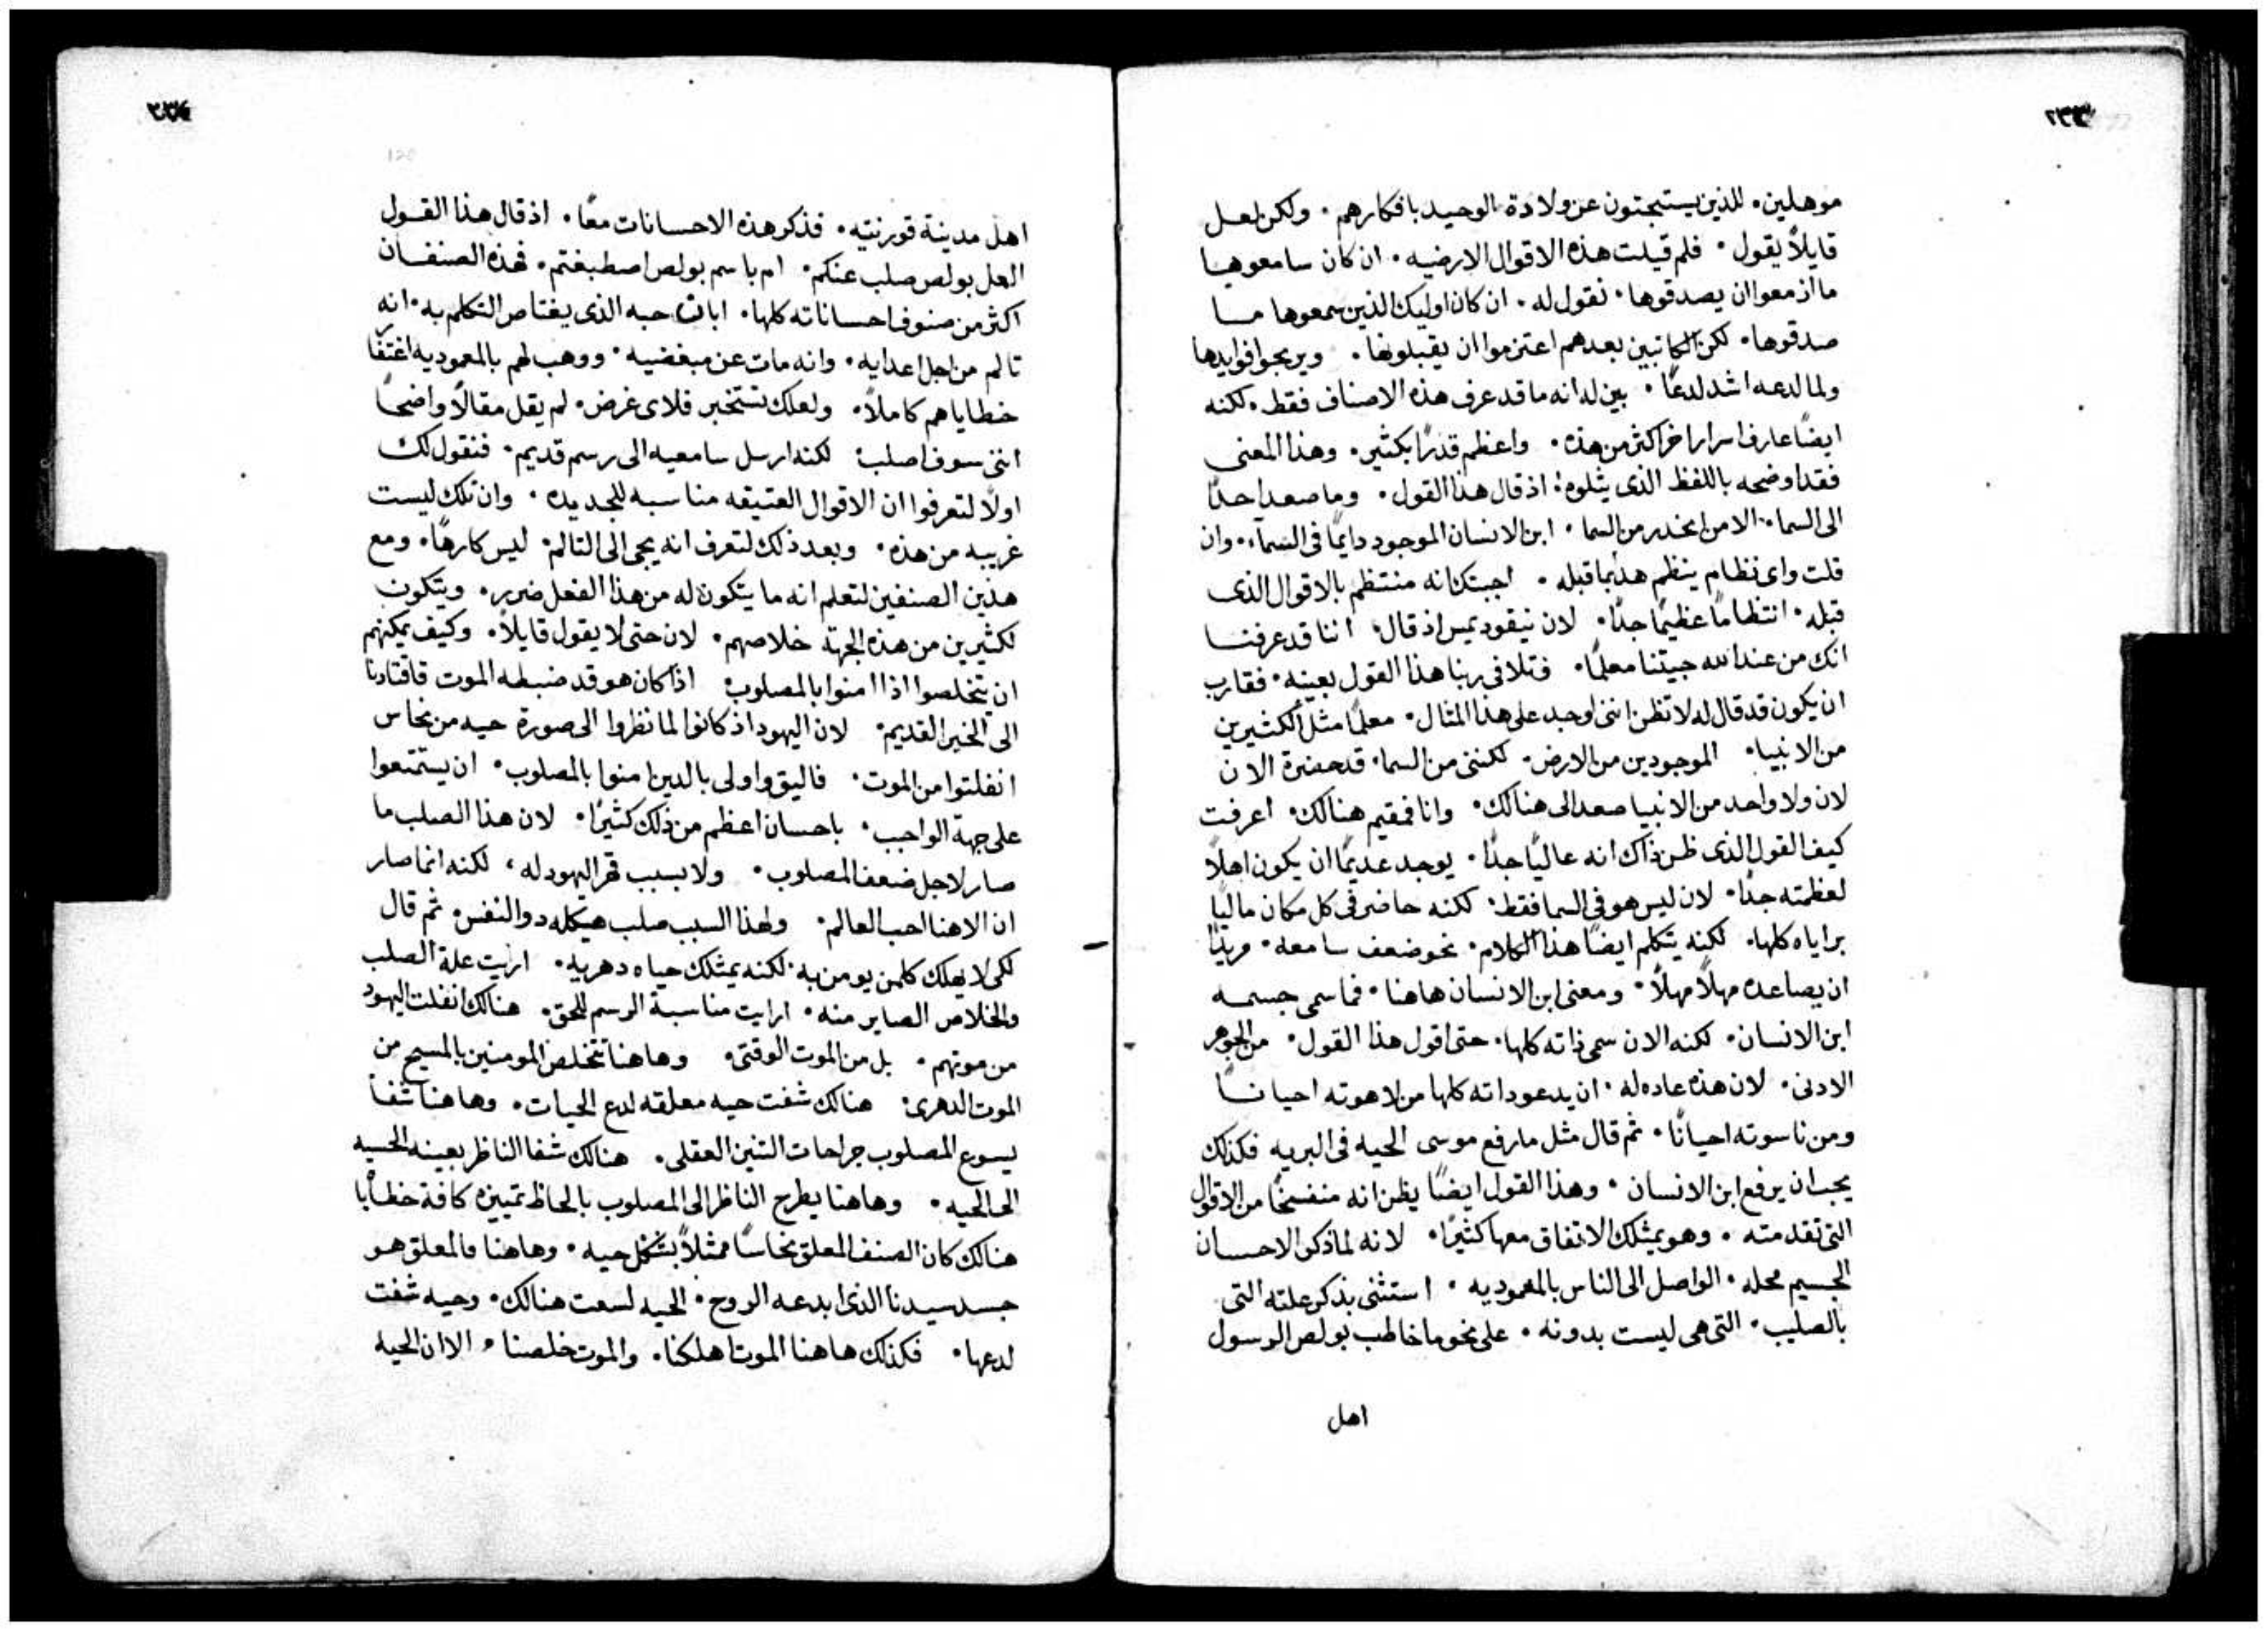 ٢٣٣
موهلين. للذين يستبحثون عن ولادة الوحيد بافكارهم. ولكن لعل
قايلاً يقول. فلم قيلت هذه الاقوال الارضيه. ان كان سامعوها
ما ازمعوا ان يصدقوها. نقول له. ان كان اوليك الذين سمعوها ما
صدقوها. لكن الكاتبين بعدهم اعتزموا ان يقبلونها. ويربحوا فوايدها
ولما لدعه اشد لدعًا. بين له انه ما قد عرف هذه الاصناف فقط. لكنه
ايضًا عارف اسرار اخر اكثر من هذه. واعظم قدرًا بكثير. وهذا المعنى
فقد اوضحه باللفظ الذى يتلوه: اذ قال هذا القول. وما صعد احدًا
الى السما. الا من انحدر من السما. ابن الانسان الموجود دايمًا فى السماء. وان
قلت واى نظام ينظم هذا بما قبله. اجبتك انه منتظم بالاقوال الذى
قبله. انتظامًا عظيمًا جدًا. لان نيقوديمس اذ قال. اننا قد عرفنا
انك من عند الله جيتنا معلمًا. فتلافى ربنا هذا القول بعينه. فقارب
ان يكون قد قال له لا تظن اننى اوجد على هذا المثال. معلمًا مثل الكثيرين
من الانبيا. الموجودين من الارض. لكننى من السما. قد حضرة الان
لان ولا واحد من الانبيا صعد الى هنالك. وانا فمقيم هنالك. اعرفت
كيف القول الذى ظن ذاك انه عاليًا جدًا. يوجد عديمًا ان يكون اهلاً
لعظمته جدًا. لان ليس هو فى السما فقط. لكنه حاضر فى كل مكان ماليًا
براياه كلها. لكنه يتكلم ايضًا هذا الكلام. نحو ضعف سامعه. مريدًا
ان يصاعده مهلاً مهلاً. ومعنى ابن الانسان هاهنا. فما سمى جسمه
ابن الانسان. لكنه الان سمى ذاته كلها. حتى اقول هذا القول. من الجوهر
الادنى. لان هذه عاده له. ان يدعو داته كلها من لاهوته احيانًا
ومن ناسوته احيانًا. ثم قال مثل ما رفع موسى الحيه فى البريه فكذلك
يجب ان يرفع ابن الانسان. وهذا القول ايضًا يظن انه منفسخًا من الاقوال
التى تقدمته. وهو يمتلك الاتفاق معها كثيرًا. لانه لما ذكر الاحسان
الجسيم محله. الواصل الى الناس بالمعموديه. استثنى بذكر علته التى
بالصليب. التى هى ليست بدونه. على نحو ما خاطب بولص الرسول
اهل
٢٣٤
120
اهل مدينة قورنتيه. فذكر هذه الاحسانات معًا. اذ قال هذا القول
العل بولص صلب عنكم. ام باسم بولص اصطبغتم. فهذه الصنفان
اكثر من صنوف احساناته كلها. ابانت حبه الذى يعتاص التكلم به. انه
تالم من اجل اعدايه. وانه مات عن مبغضيه. ووهب لهم بالمعموديه اغتفار
خطاياهم كاملاً. ولعلك تستخبر فلاى غرض. لم يقل مقالاً واضحًا
اننى سوف اصلب: لكنه ارسل سامعيه الى رسم قديم. فنقول لك
اولاً لتعرفوا ان الاقوال العتيقه مناسبه للجديده. وان تلك ليست
غريبه من هذه. وبعد ذلك لتعرف انه يجى الى التالم: ليس كارهًا. ومع
هذين الصنفين لتعلم انه ما يتكون له من هذا الفعل ضرر. ويتكون
لكثيرين من هذه الجهة خلاصهم. لان حتى لا يقول قايلاً. وكيف يمكنهم
ان يتخلصوا اذا امنوا بالمصلوب: اذا كان هو قد ضبطه الموت فاقتادنا
الى الخبر القديم: لان اليهود اذ كانوا لما نظروا الى صورة حيه من نحاس
انفلتوا من الموت. فاليق واولى بالدين امنوا بالمصلوب. ان يستمتعوا
على جهة الواجب. باحسان اعظم من ذلك كثيرًا. لان هذا الصلب ما
صار لاجل ضعف المصلوب. ولا بسبب قهر اليهود له، لكنه انما صار
ان الاهنا احب العالم. ولهذا السبب صلب هيكله دو النفس. ثم قال
لكى لا يهلك كلمن يومن به. لكنه يمتلك حياه دهريه. اريت علة الصلب
والخلاص الصاير منه. ارايت مناسبة الرسم للحق. هنالك انفلت اليهود
من موتهم. بل من الموت الوقتى. وهاهنا تخلص المومنين بالمسيح من
الموت الدهرى: هنالك شفت حيه معلقه لدع الحيات. وهاهنا شفا
يسوع المصلوب جراحات التنين العقلى. هنالك شفا الناظر بعينه الحسيه
الى الحيه. وهاهنا يطرح الناظر الى المصلوب بالحاظ تمييزه كافة خطايا
هنالك كان الصنف المعلق نحاسًا ممثلاً بشكل حيه. وهاهنا فالمعلق هو
جسد سيدنا الذى ابدعه الروح. الحيه لسعت هنالك. وحيه شفت
لدعها. فكذلك هاهنا الموت اهلكنا. والموت خلصنا. الا ان الحيه